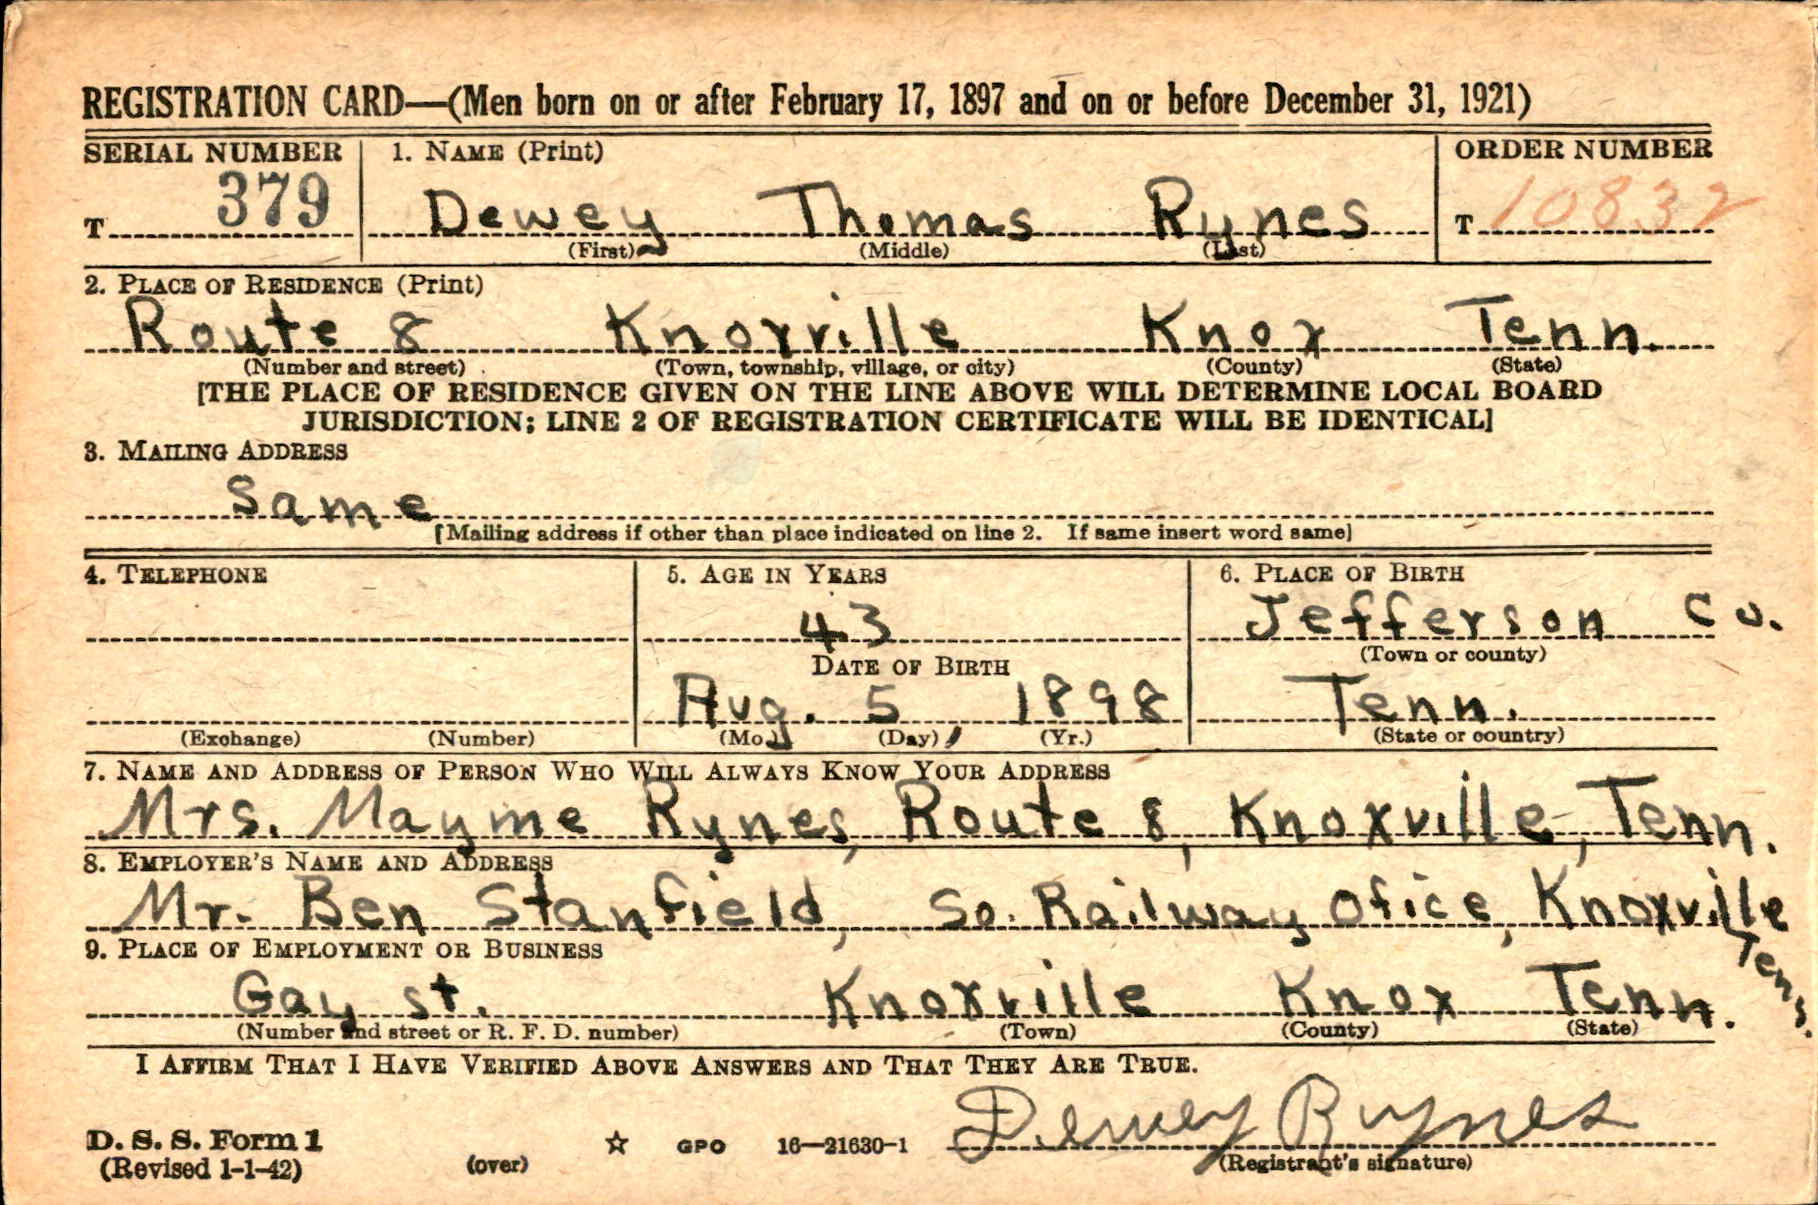 REGISTRATION CARD—(Men born on or after February 17, 1897 and on or before December 31, 1921)
SERIAL NUMBER 1. NAME (Print) ORDER NUMBER
T 379 Dewey Thomas Rynes T 10832
(First) (Middle) (Last)
2. PLACE OF RESIDENCE (Print)
Route 8 Knoxville Knox Tenn.
(Number and street) (Town, township, village, or city) (County) (State)
[THE PLACE OF RESIDENCE GIVEN ON THE LINE ABOVE WILL DETERMINE LOCAL BOARD
JURISDICTION; LINE 2 OF REGISTRATION CERTIFICATE WILL BE IDENTICAL]
3. MAILING ADDRESS
Same
[Mailing address if other than place indicated on line 2. If same insert word same]
4. TELEPHONE 5. AGE IN YEARS 6. PLACE OF BIRTH
43 Jefferson Co.
DATE OF BIRTH (Town or county)
Aug. 5, 1898 Tenn.
(Exchange) (Number) (Mo.) (Day) (Yr.) (State or country)
7. NAME AND ADDRESS OF PERSON WHO WILL ALWAYS KNOW YOUR ADDRESS
Mrs. Mayme Rynes, Route 8, Knoxville, Tenn.
8. EMPLOYER'S NAME AND ADDRESS
Mr. Ben Stanfield, So. Railway Ofice, Knoxville
Tenn.
9. PLACE OF EMPLOYMENT OR BUSINESS
Gay St. Knoxville Knox Tenn.
(Number and street or R. F. D. number) (Town) (County) (State)
I AFFIRM THAT I HAVE VERIFIED ABOVE ANSWERS AND THAT THEY ARE TRUE.
Dewey Rynes
D. S. S. Form 1 GPO 16—21630-1
(Revised 1-1-42) (over) (Registrant's signature)